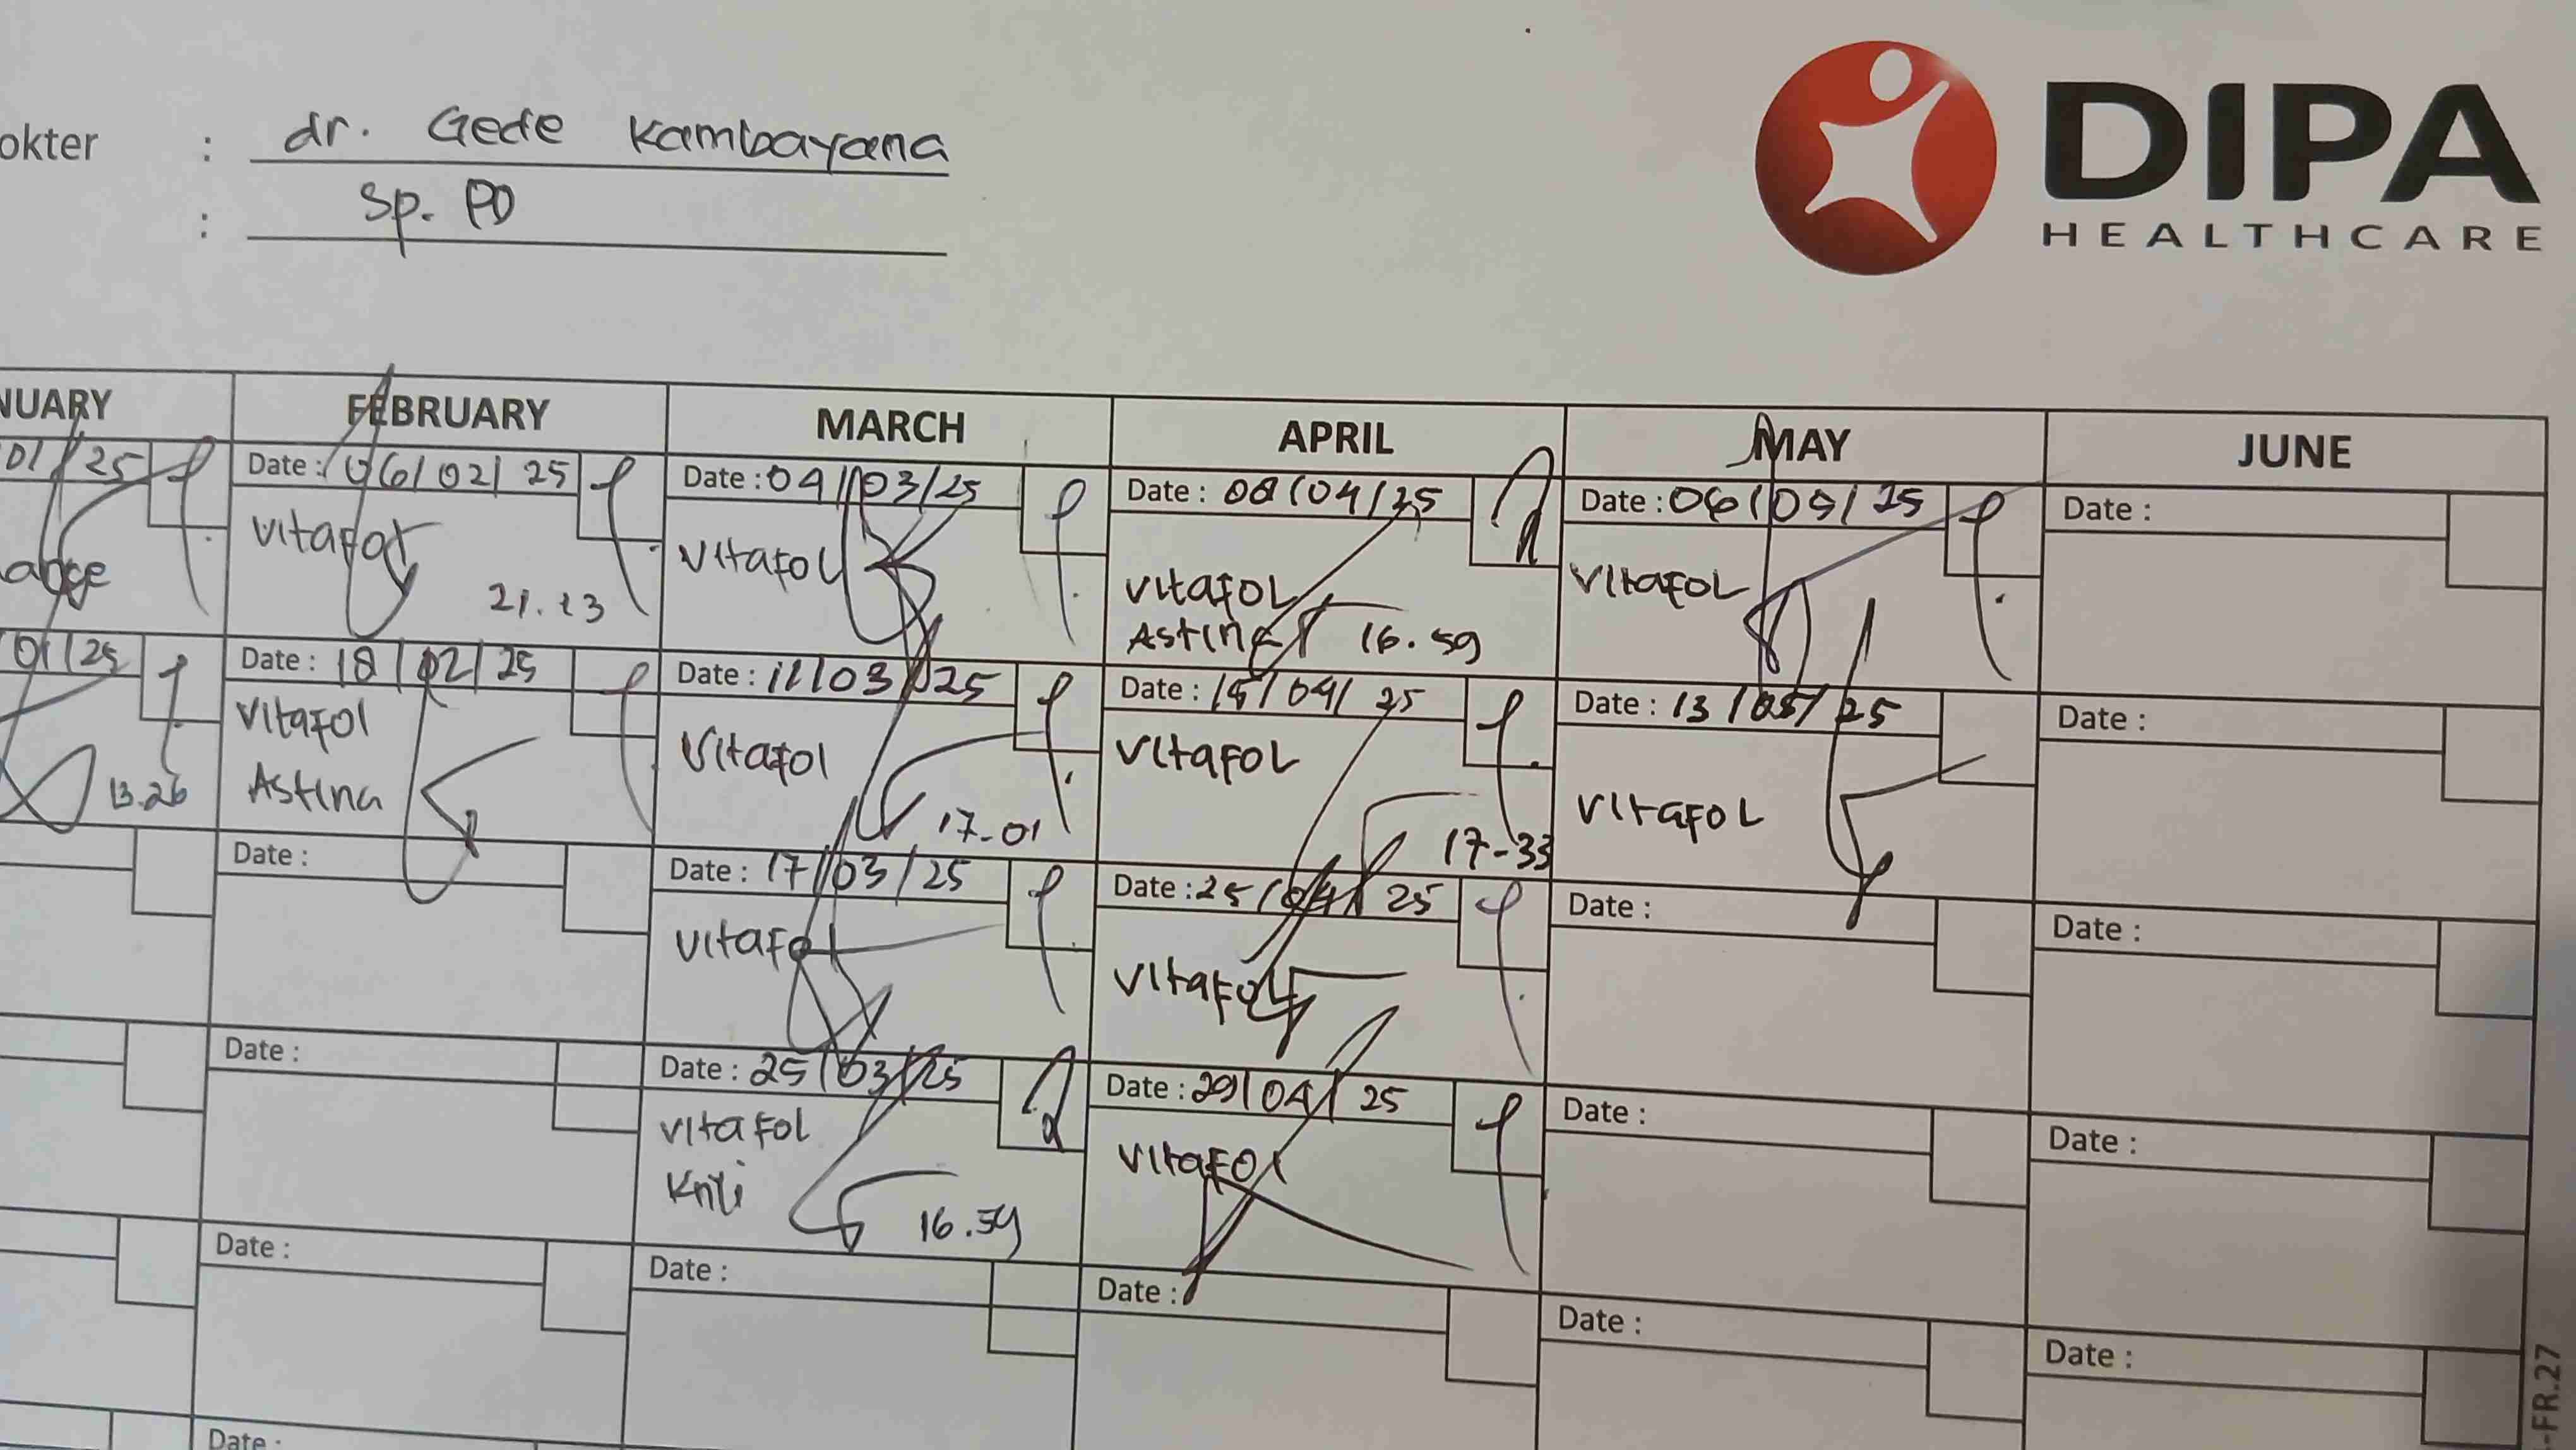 okter : dr. Gede Kambayana
: Sp. PD
DIPA
HEALTHCARE
NUARY FEBRUARY MARCH APRIL MAY JUNE
01/25 Date : 06/02/25 Date : 04/03/25 Date : 08/04/25 Date : 06/05/25 Date :
Vitafol Vitafol Vitafol Vitafol
21.13 Astina 16.59
01/25 Date : 18/02/25 Date : 11/03/25 Date : 15/04/25 Date : 13/05/25 Date :
Vitafol Vitafol Vitafol Vitafol
13.26 Astina 17-01 17-33
Date : Date : 17/03/25 Date : 25/04/25 Date : Date :
Vitafol Vitafol
Date : Date : 25/03/25 Date : 29/04/25 Date : Date :
Vitafol Vitafol
16.59
Date : Date : Date : Date : Date :
Date :
-FR.27